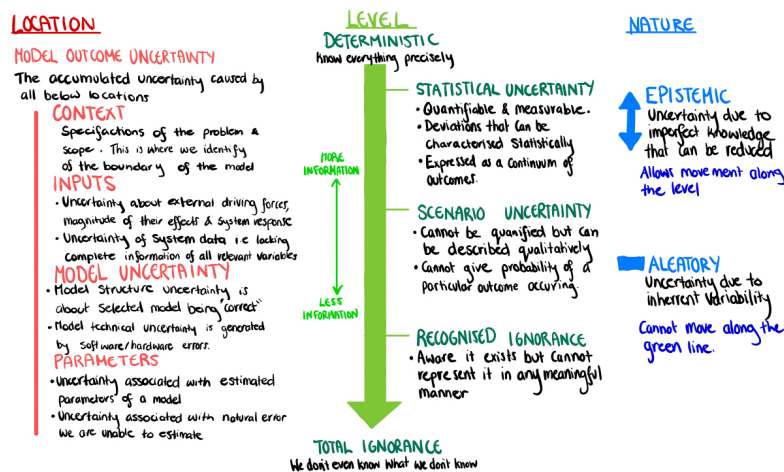 LOCATION
MODEL OUTCOME UNCERTAINTY
The accumulated uncertainty caused by
all below locations
CONTEXT
Specifactions of the problem &
scope. This is where we identify
of the boundary of the model
INPUTS
• Uncertainty about external driving forces,
magnitude of their effects & system response
• Uncertainty of system data i.e lacking
complete information of all relevant variables
MODEL UNCERTAINTY
• Model structure uncertainty is
about selected model being "correct"
• Model technical uncertainty is generated
by software/hardware errors.
PARAMETERS
• Uncertainty associated with estimated
parameters of a model
• Uncertainty associated with natural error
we are unable to estimate
LEVEL
DETERMINISTIC
Know everything precisely
MORE
INFORMATION
LESS
INFORMATION
STATISTICAL UNCERTAINTY
• Quantifiable & measurable.
• Deviations that can be
characterised statistically
• Expressed as a continuum of
outcomes.
SCENARIO UNCERTAINTY
• Cannot be quanified but can
be described qualitatively
• Cannot give probability of a
particular outcome occuring.
RECOGNISED IGNORANCE
• Aware it exists but cannot
represent it in any meaningful
manner
TOTAL IGNORANCE
We don't even know what we don't know
NATURE
EPISTEMIC
Uncertainty due to
imperfect knowledge
that can be reduced
Allows movement along
the level
ALEATORY
Uncertainty due to
inherent variability
Cannot move along the
green line.